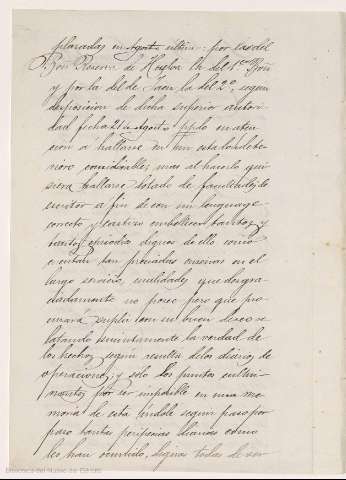 plazadas en Agosto último: por las del
Bon Reserva de Huelva la del 1er Bon
y por la del de Jaen la del 2o, segun
disposicion de dicha superior autori-
dad fecha 21 de Agosto ppdo en aten-
cion a hallarse en un estado de dete-
rioro considerable; mas al hacerlo qui-
siera hallarse dotado de facultades de
escritor a fin de con un lenguage
correcto y castizo embellecer tantos y
tantos episodios dignos de ello como
cuentan tan preciadas enseñas en el
largo servicio, cualidades que desgra-
ciadamente no poseo pero que pro-
curará suplir con su buen deseo re-
latando sucintamente la verdad de
los hechos segun resulta de los diarios de
operaciones, y sólo los puntos culmi-
nantes por ser imposible en una me-
moria de esta indole seguir paso por
paso tantas peripecias diarias como
les han ocurrido, dignas todas de ser
Biblioteca del Museo del Ejército